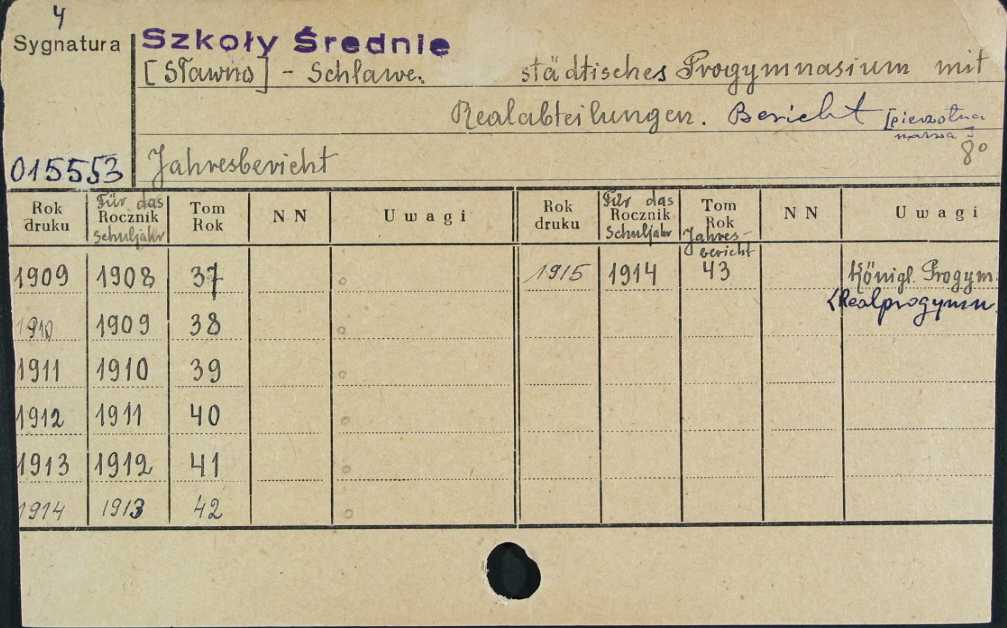 4
Sygnatura
Szkoły Średnie
[Sławno] - Schlawe. städtisches Progymnasium mit
Realabteilungen. Bericht [pierwotna
nazwa]
8°
015553 Jahresbericht
Rok druku | Für das Rocznik Schuljahr | Tom Rok | NN | Uwagi | Rok druku | Für das Rocznik Schuljahr | Tom Rok Jahres-bericht | NN | Uwagi
1909 | 1908 | 37 | | | 1915 | 1914 | 43 | | Königl. Progym.
(Realprogymn.
1910 | 1909 | 38
1911 | 1910 | 39
1912 | 1911 | 40
1913 | 1912 | 41
1914 | 1913 | 42